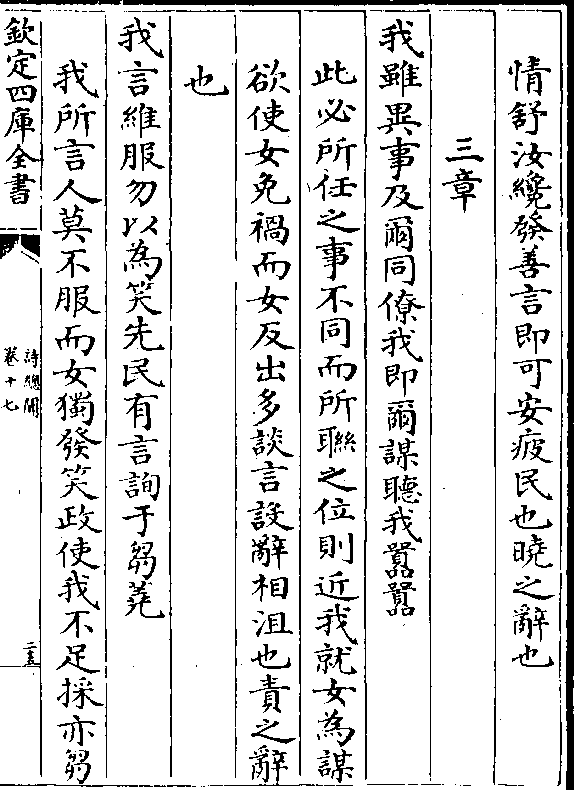 情舒汝纔發善言即可安疲民也曉之辭也
三章
我雖異事及爾同僚我即爾謀聽我囂囂
此必所任之事不同而所聯之位則近我就女為謀
欲使女免禍而女反出多談言設辭相沮也責之辭
也
我言維服勿以為笑先民有言詢于芻蕘
我所言人莫不服而女獨發笑政使我不足採亦芻
欽定四庫全書
詩總聞
卷十七
二十五